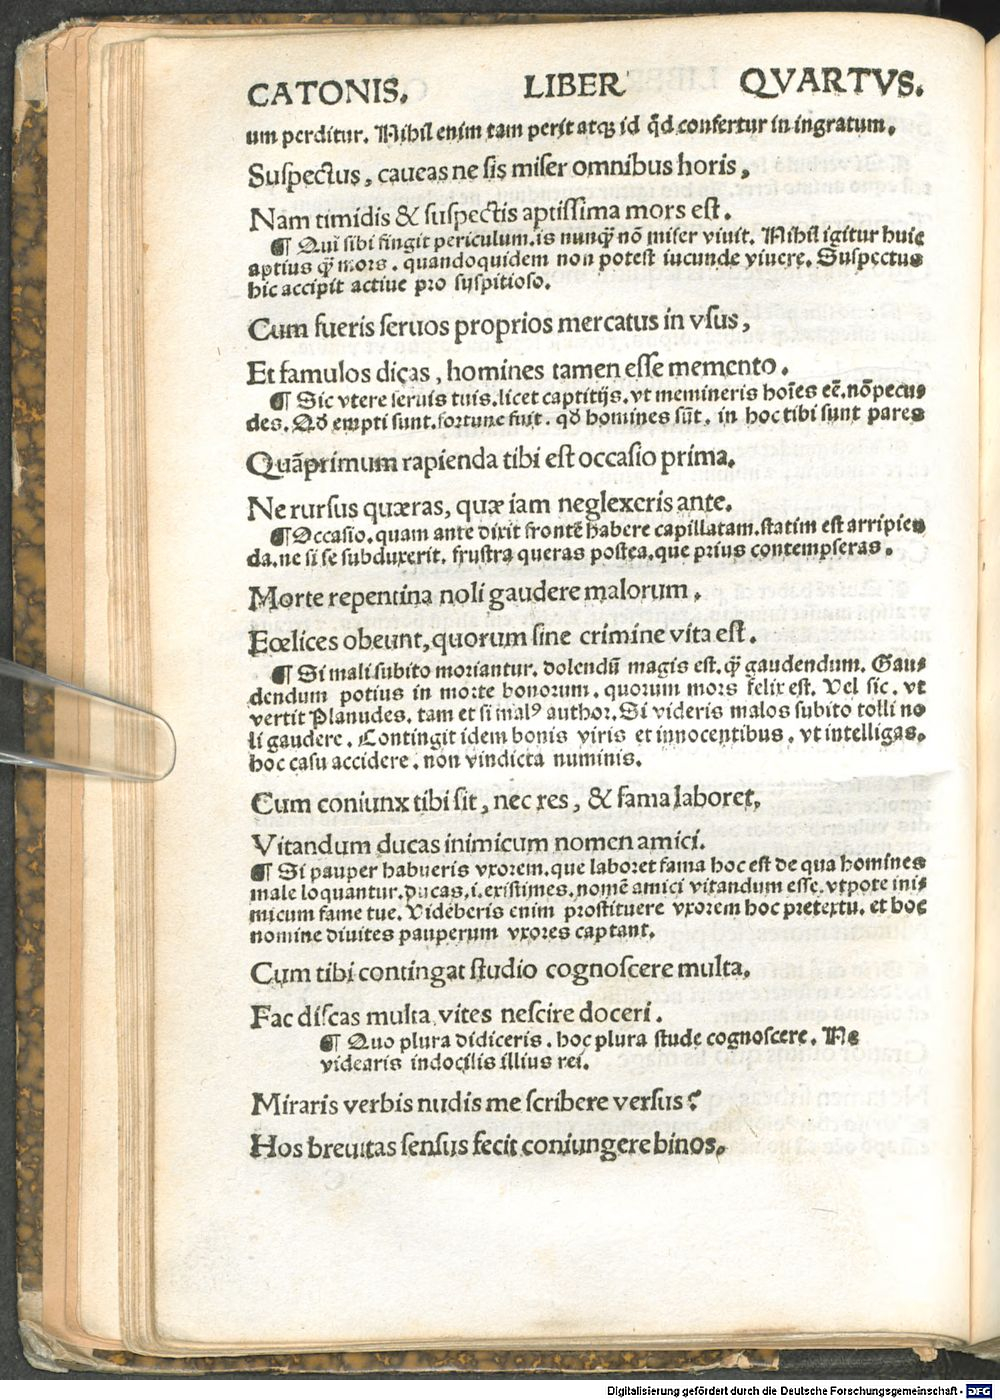 CATONIS. LIBER QVARTVS.
um perditur. Nihil enim tam perit atqꝫ id qđ confertur in ingratum.
Suspectus, caueas ne sis miser omnibus horis,
Nam timidis & suspectis aptissima mors est.
¶ Qui sibi fingit periculum, is nunqꝫ nō miser viuit. Nihil igitur huic
aptius qꝫ mors. quandoquidem non potest iucunde viuere. Suspectus
hic accipit actiue pro suspitioso.
Cum fueris seruos proprios mercatus in vsus,
Et famulos dicas, homines tamen esse memento.
¶ Sic vtere seruis tuis. licet captitijs. vt memineris hoīes eē. nō pecu⸗
des. Qđ empti sunt. fortune fuit. qđ homines sūt. in hoc tibi sunt pares
Quāprimum rapienda tibi est occasio prima.
Ne rursus quæras, quæ iam neglexeris ante.
¶ Occasio. quam ante dixit frontē habere capillatam. statim est arripien
da. ne si se subduxerit. frustra queras postea. que prius contempseras.
Morte repentina noli gaudere malorum,
Fœlices obeunt, quorum sine crimine vita est.
¶ Si mali subito moriantur. dolendū magis est. qꝫ gaudendum. Gau⸗
dendum potius in morte bonorum. quorum mors felix est. Vel sic. vt
vertit Planudes. tam et si malꝰ author. Si videris malos subito tolli no
li gaudere. Contingit idem bonis viris et innocentibus. vt intelligas.
hoc casu accidere. non vindicta numinis.
Cum coniunx tibi sit, nec res, & fama laboret,
Vitandum ducas inimicum nomen amici.
¶ Si pauper habueris vxorem. que laboret fama hoc est de qua homines
male loquantur. ducas. i. existimes. nomē amici vitandum esse. vtpote ini⸗
micum fame tue. Videberis enim prostituere vxorem hoc pretextu. et hoc
nomine diuites pauperum vxores captant.
Cum tibi contingat studio cognoscere multa,
Fac discas multa vites nescire doceri.
¶ Quo plura didiceris. hoc plura stude cognoscere. Ne
videaris indocilis illius rei.
Miraris verbis nudis me scribere versus?
Hos breuitas sensus fecit coniungere binos.
Digitalisierung gefördert durch die Deutsche Forschungsgemeinschaft - DFG